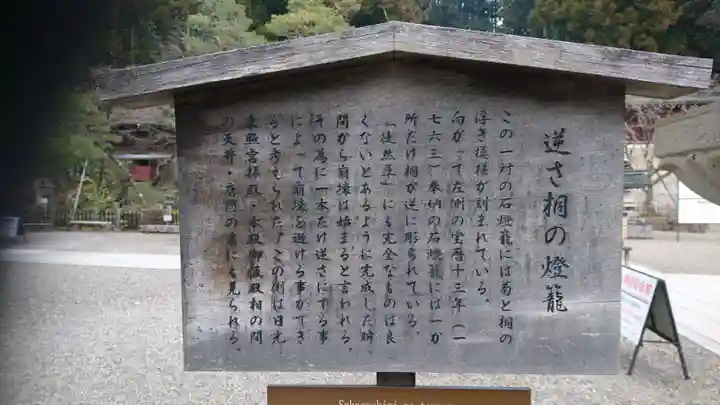 逆さ桐の燈籠
この一対の石燈籠には菊と桐の
浮き模様が刻まれている。
向かって左側の宝暦十三年(一
七六三)奉納の石燈籠には一か
所だけ桐が逆に彫られている。
「徒然草」にも完全なものは良
くないとあるように完成した時、
間から崩壊は始まると言われる。
その為に一本だけ逆さにする事
によって崩壊を避ける事ができ
ると考えられた。この例は日光
東照宮拝殿・本殿御仮殿相の間
の天井・唐門の
にも見られる。